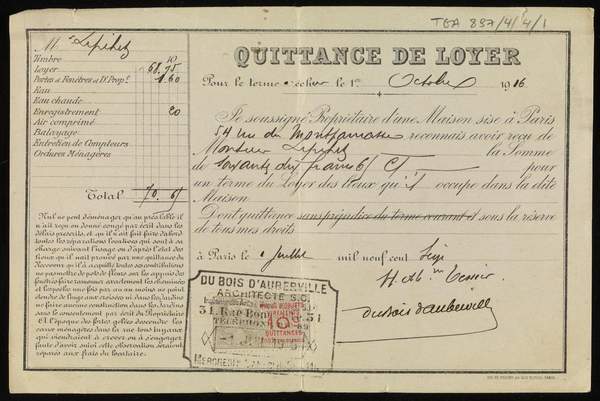 TGA 897/4/4/1
Mr Lepihez
Timbre 10
Loyer 68.75
Portes et Fenêtres et Dt Propé. 1.60
Eau
Eau chaude
Enregistrement 20
Air comprimé
Balayage
Entretien de Compteurs
Ordures Ménagères
Total 70.65
Nul ne peut déménager qu'au préalable il
n'ait reçu ou donné congé par écrit dans les
délais prescrits, et qu'il n'ait fait faire d'abord
toutes les réparations locatives qui sont à sa
charge suivant l'usage ou d'après l'état des
lieux qu'il doit prouver par une quittance du
Receveur qu'il a acquitté toutes ses contributions
ne pas mettre de pots de fleurs sur les appuis des
fenêtres faire ramoner exactement les cheminées
et larder une fois par an au moins ne point
étendre de linge aux croisées ni dans les Jardins
ne faire aucune construction dans les Jardins
sans le consentement par écrit du Propriétaire
et l'époque des fortes gelées descendre les
eaux ménagères dans la rue tous tuyaux
qui viendraient à crever ou à s'engorger
faute d'avoir suivi cette observation seraient
réparés aux frais du locataire.
QUITTANCE DE LOYER
Pour le terme échu le 1er Octobre 1916
Je soussigné Propriétaire d'une Maison sise à Paris
54 rue du Montparnasse reconnais avoir reçu de
Monsieur Lepihez la Somme
de soixante dix francs 65 Cs pour
un terme du Loyer des lieux qu'il occupe dans la dite
Maison
Dont quittance sans préjudice du terme courant et sous la réserve
de tous mes droits
à Paris le Juillet mil neuf cent Seize
dubois d'auberville
DU BOIS D'AUBERVILLE
ARCHITECTE S.C.
31, Rue 31
TÉLÉPHONE
QUITTANCES
MERCREDIS